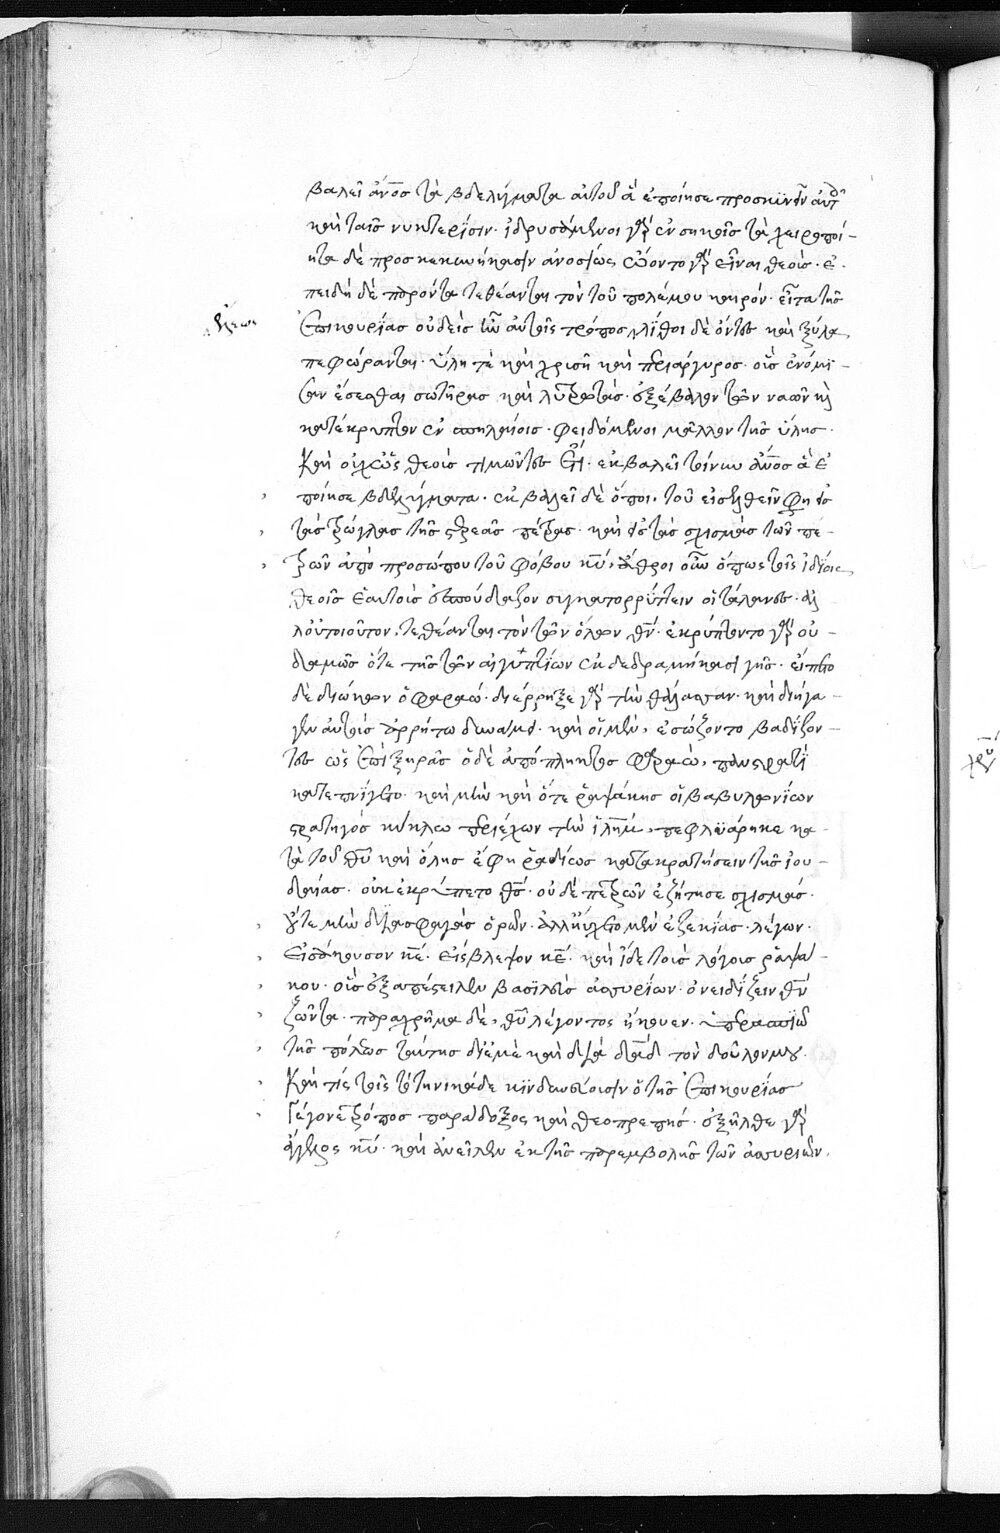 βαλεῖ ἄνοσ τὰ βδελύγματα αὐτοῦ ἃ ἐποίησε προσκυνεῖν αὐτ
καὶ ταῖσ νυκτερίσιν. ἱδρυσάμενοι γὰρ ἐν σηκοῖσ τὰ χειροποί-
ητα δὲ προσκεκυνήκασιν ἀνοσίως ὤοντο γὰρ εἶναι θεούσ. ἐ-
πειδὴ δὲ παρόντα τεθέανται τὸν τοῦ πολέμου καιρόν. εἶτα τῆσ
ἐπικουρίασ οὐδεὶσ ἦν αὐτοῖς τρόποσ λίθοι δὲ ὄντες καὶ ξύλα
πεφώρανται. ὕλη τὲ καὶ χρυσῆ καὶ περιάργυροσ. οὓσ ἐνόμι-
ζον ἔσεσθαι σωτῆρασ καὶ λυτρωτάσ. ἐξέβαλον τῶν ναῶν κὶ
κατέκρυπτον ἐν σπηλαίοισ. φειδόμενοι μᾶλλον τῆσ ὕλησ.
Καὶ οὐχ ὡς θεοὺσ τιμῶντες ἔτι. ἐκβαλεῖ τοίνυν ἄνοσ ἃ ἐ
ποίησε βδελύγματα. ἐκβαλεῖ δὲ ὅποι. τοῦ εἰσελθεῖν φη εἰσ
τὰσ τρώγλασ τῆσ στερεᾶσ πέτρασ. καὶ εἰσ τὰσ σχισμὰσ τῶν πε-
τρῶν ἀπὸ προσώπου τοῦ φόβου κυ, ἄθροι οὖν ὅπως τοῖς ἰδίοις
θεοῖσ ἑαυτοὺσ ἐσπούδαζον συγκατορρύπτειν οἱ τάλανες. ἀλ
λ οὐ τοιοῦτον, τεθέανται τὸν τῶν ὅλων θν. ἐκρύπτοντο γὰρ οὐ-
δαμῶσ ὅτε τῆσ τῶν αἰγυπτίων ἐκδεδραμήκασι γῆσ. εἵπετο
δὲ διώκων ὁ φαραώ. διέρρηξε γὰρ τὴν θάλασσαν. καὶ διήγα-
γεν αὐτοὺσ ἀρρήτω δυνάμει. καὶ οἱ μὲν, ἐσώζοντο βαδίζον-
τες ὡς ἐπὶ ξηρᾶσ ὁ δὲ ἀπόπληκτοσ φαραὼ, πανστρατὶ
κατεπνίγετο. καὶ μὴν καὶ ὅτε ῥαψάκησ ὁ βαβυλωνίων
στρατηγὸσ κύκλω περιέχων τὴν ἰλημ, πεφλυάρηκε κα-
τὰ τοῦ θυ καὶ ὅλησ ἔφη ῥαδίωσ κατακρατήσειν τῆσ ἰου-
δαίασ. οὐκ ἐκρύπτετο θσ. οὐδὲ πετρῶν ἐζήτησε σχισμάσ.
οὔτε μὴν διασφαγὰσ ὀρῶν. ἀλλ ηὔχετο μὲν ἐζεκίασ. λέγων.
Εἰσάκουσον κε. εἴσβλεψον κε. καὶ ἴδε τοὺσ λόγουσ ῥαψά
κου. οὓσ ἐξαπέστειλεν βασιλεὺσ ἀσσυρίων. ὀνειδίζειν θν
ζῶντα. παραχρῆμα δὲ, θυ λέγοντος ἤκουεν. ὑπερασπιῶ
τῆσ πόλεωσ ταύτησ δι ἐμὲ καὶ διὰ δαδ τὸν δοῦλον μου.
Καὶ τίς τοῖς τὸ τηνικάδε κινδυνεύουσιν ὁ τῆσ ἐπικουρίασ
Γέγονε τρόποσ παράδοξος καὶ θεοπρεπήσ. ἐξῆλθε γὰρ
ἄγγελος κυ. καὶ ἀνεῖλεν ἐκ τῆσ παρεμβολῆσ τῶν ἀσσυρίων.